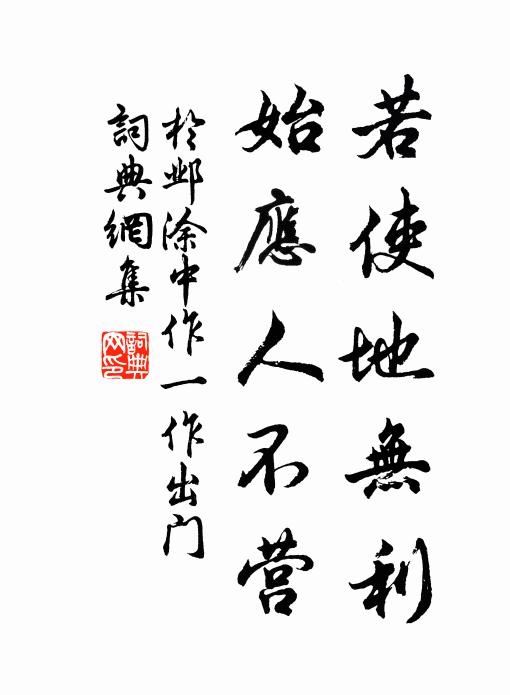 若使地無利
始應人不营
於邺涂中作一作出门
詞典網集
詞典网印